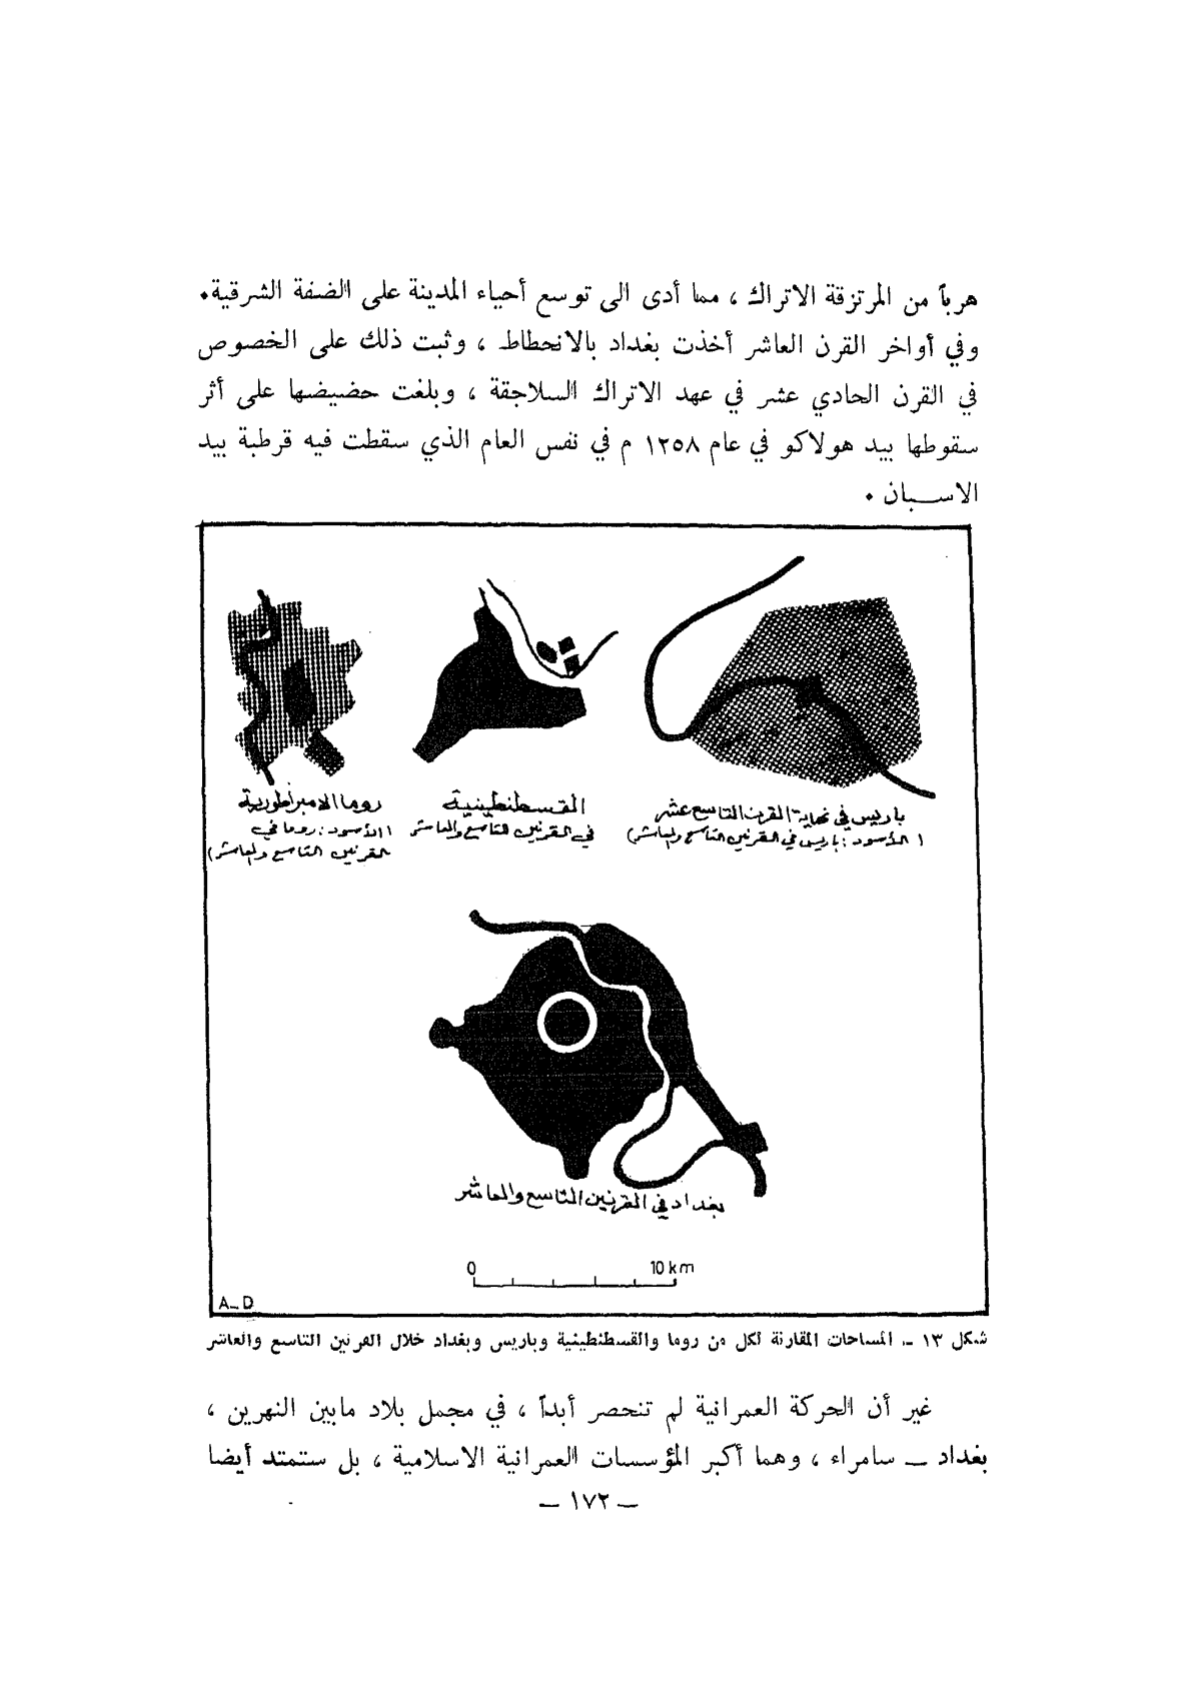 هرباً من المرتزقة الاتراك ، مما أدى الى توسع أحياء المدينة على الضفة الشرقية.
وفي أواخر القرن العاشر أخذت بغداد بالانحطاط ، وثبت ذلك على الخصوص
في القرن الحادي عشر في عهد الاتراك السلاجقة ، وبلغت حضيضها على أثر
سقوطها بيد هولاكو في عام ١٢٥٨ م في نفس العام الذي سقطت فيه قرطبة بيد
الاســبان .
باريس في نهاية القرن التاسع عشر
( الأسود : باريس في القرنين التاسع والعاشر)
القسطنطينية
في القرنين التاسع والعاشر
روما الامبراطورية
( الأسود : روما في
القرنين التاسع والعاشر)
بغداد في القرنين التاسع والعاشر
0 10 km
A_D
شكل ١٣ ــ المساحات المقارنة لكل من روما والقسطنطينية وباريس وبغداد خلال القرنين التاسع والعاشر
غير أن الحركة العمرانية لم تنحصر أبداً ، في مجمل بلاد مابين النهرين ،
بغداد ــ سامراء ، وهما أكبر المؤسسات العمرانية الاسلامية ، بل ستمتد أيضا
— ١٧٢ —